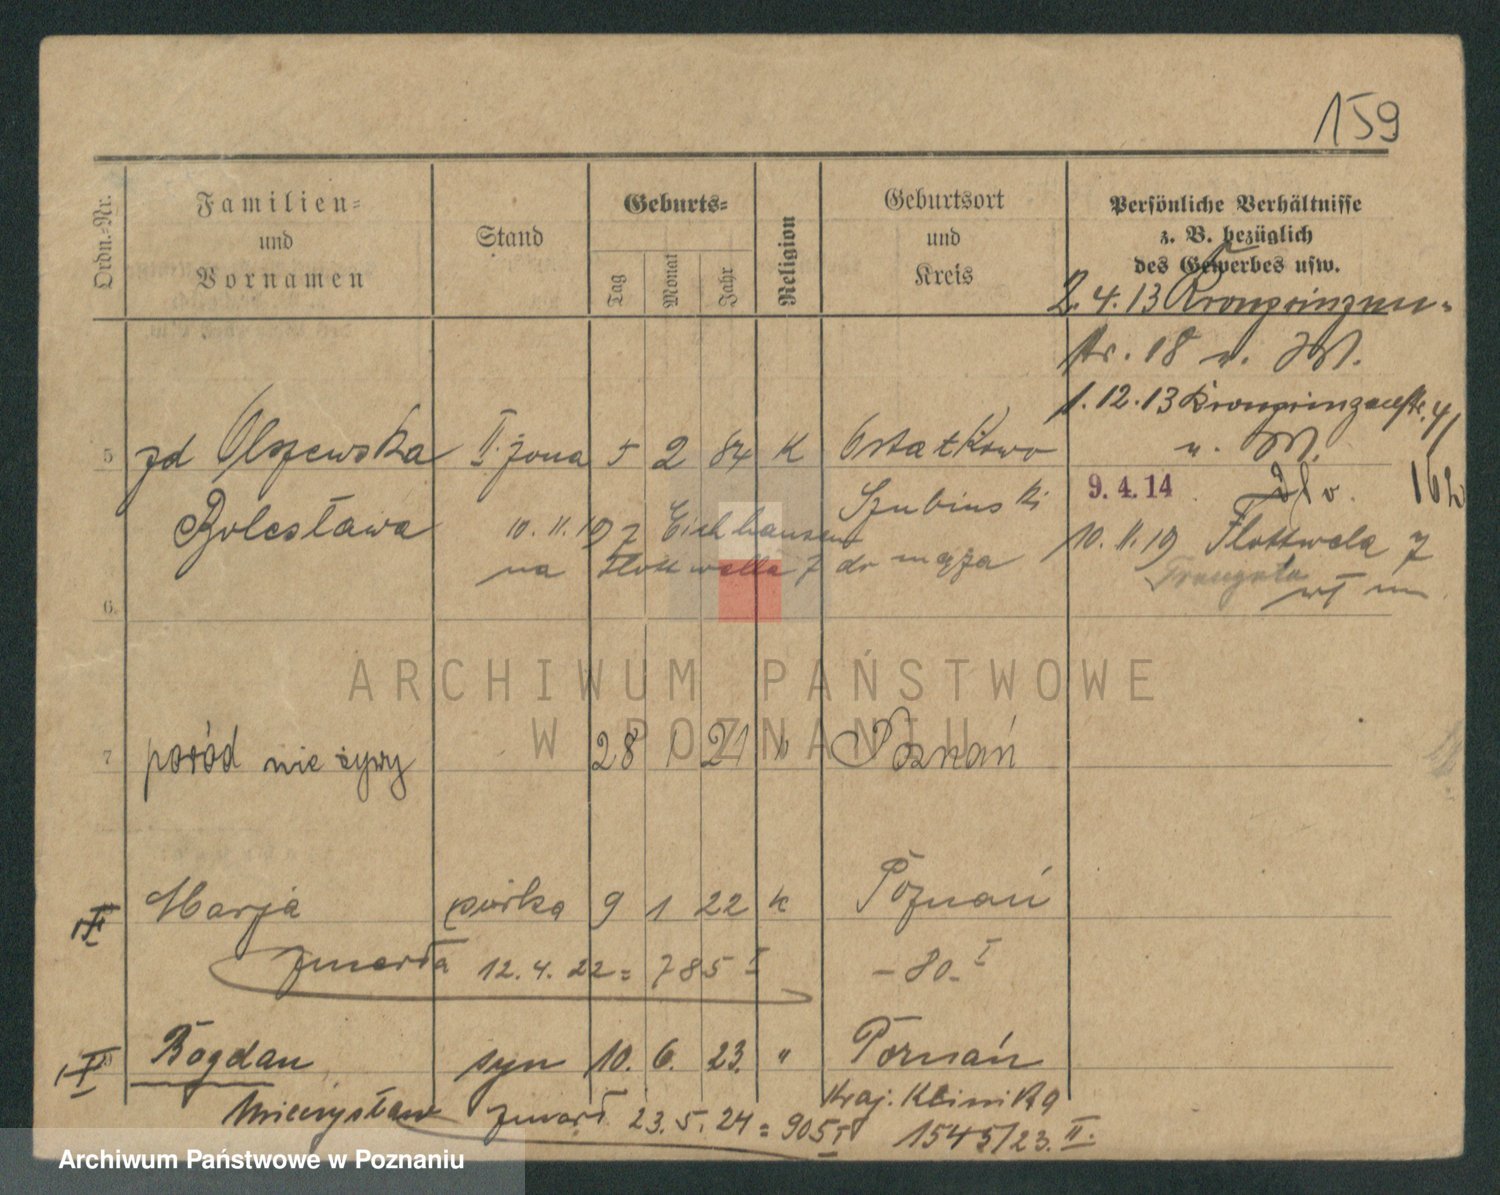 159
Ordn.-Nr.
Familien-
und
Vornamen
Stand
Geburts-
Tag
Monat
Jahr
Religion
Geburtsort
und
Kreis
Persönliche Verhältnisse
z. B. bezüglich
des Gewerbes usw.
2.4.13 Kronprinzen-
str. 18 v. M.
1.12.13 Kronprinzenstr. 41
v. M.
5 zd Olszewska II. żona 5 2 84 K Ostatkowo
9.4.14 162
Bolesława Szubinski
10.11.19 z Eichhausen
10.11.19 Flottwela 7
na Flottwella 7 do męża
6.
ARCHIWUM PAŃSTWOWE
W POZNANIU
7 poród nie żywy 28 1 21 k Poznań
II Marja córka 9 1 22 k Poznań
zmarła 12.4.22 = 785 I - 80 - I
II Bogdan syn 10. 6. 23. " Poznań
Mieczysław zmarł 23.5.24 = 905 I
Kraj. Klinika
1545/23. II.
Archiwum Państwowe w Poznaniu